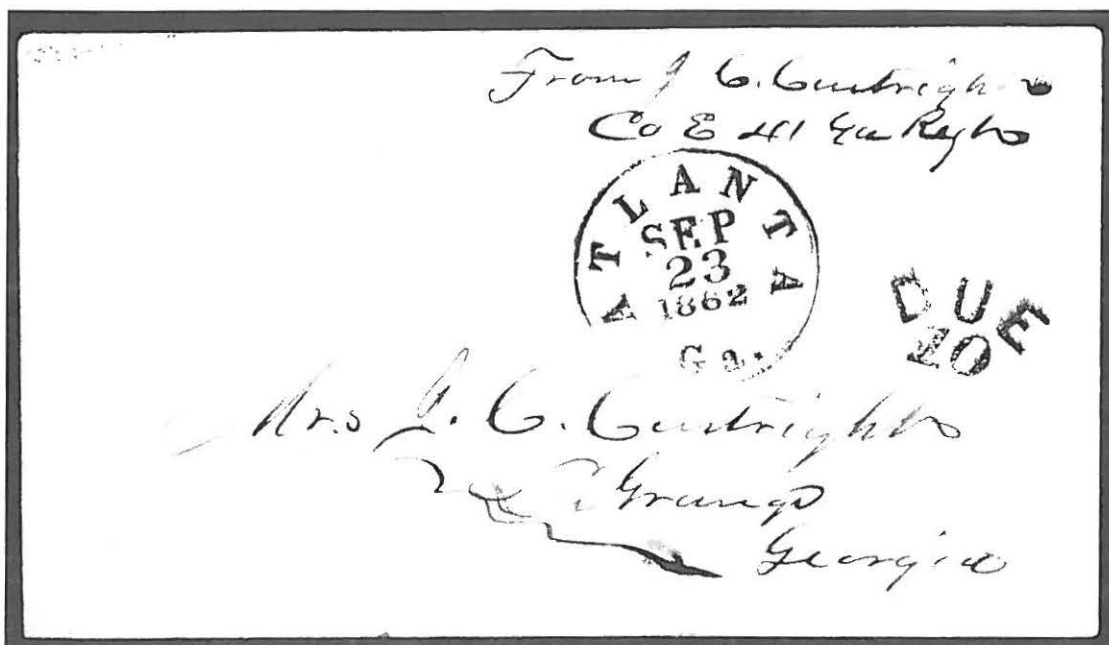 From J C. Curtright
Co E 41 Ga Regt
ATLANTA
SEP
23
1862
Ga.
DUE
10
Mrs J. C. Curtright
La Grange
Georgia